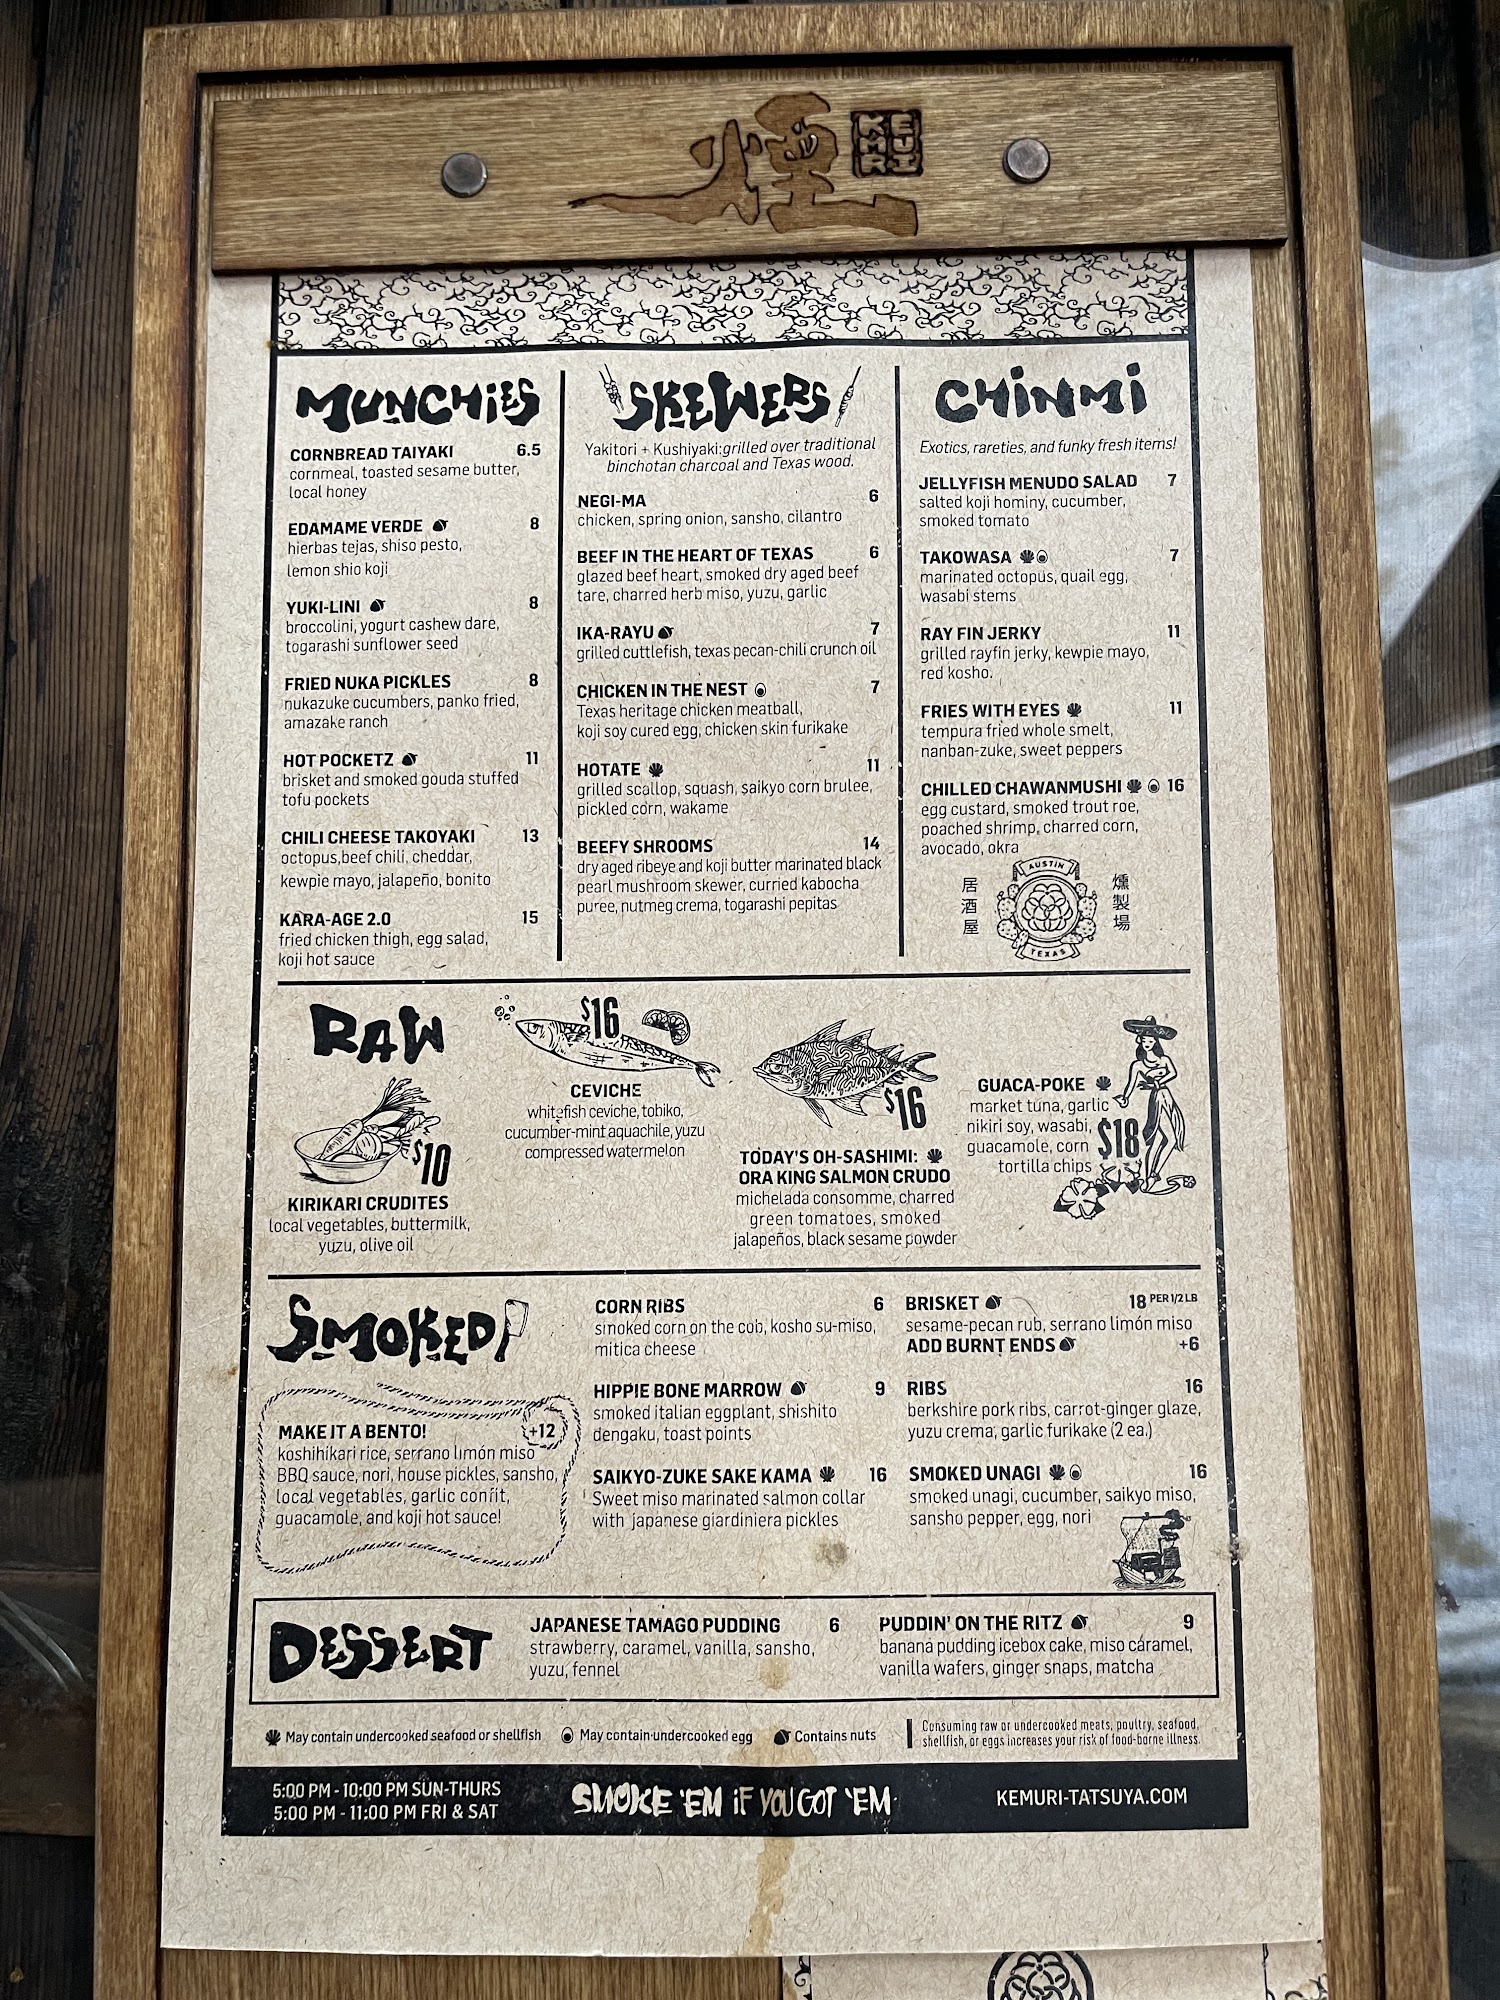 煙
KEMURI
MUNCHIES
CORNBREAD TAIYAKI 6.5
cornmeal, toasted sesame butter,
local honey
EDAMAME VERDE 8
hierbas tejas, shiso pesto,
lemon shio koji
YUKI-LINI 8
broccolini, yogurt cashew dare,
togarashi sunflower seed
FRIED NUKA PICKLES 8
nukazuke cucumbers, panko fried,
amazake ranch
HOT POCKETZ 11
brisket and smoked gouda stuffed
tofu pockets
CHILI CHEESE TAKOYAKI 13
octopus,beef chili, cheddar,
kewpie mayo, jalapeño, bonito
KARA-AGE 2.0 15
fried chicken thigh, egg salad,
koji hot sauce
SKEWERS
Yakitori + Kushiyaki:grilled over traditional
binchotan charcoal and Texas wood.
NEGI-MA 6
chicken, spring onion, sansho, cilantro
BEEF IN THE HEART OF TEXAS 6
glazed beef heart, smoked dry aged beef
tare, charred herb miso, yuzu, garlic
IKA-RAYU 7
grilled cuttlefish, texas pecan-chili crunch oil
CHICKEN IN THE NEST 7
Texas heritage chicken meatball,
koji soy cured egg, chicken skin furikake
HOTATE 11
grilled scallop, squash, saikyo corn brulee,
pickled corn, wakame
BEEFY SHROOMS 14
dry aged ribeye and koji butter marinated black
pearl mushroom skewer, curried kabocha
puree, nutmeg crema, togarashi pepitas
CHINMI
Exotics, rareties, and funky fresh items!
JELLYFISH MENUDO SALAD 7
salted koji hominy, cucumber,
smoked tomato
TAKOWASA 7
marinated octopus, quail egg,
wasabi stems
RAY FIN JERKY 11
grilled rayfin jerky, kewpie mayo,
red kosho.
FRIES WITH EYES 11
tempura fried whole smelt,
nanban-zuke, sweet peppers
CHILLED CHAWANMUSHI 16
egg custard, smoked trout roe,
poached shrimp, charred corn,
avocado, okra
居酒屋
AUSTIN
TEXAS
燻製場
RAW
$10
KIRIKARI CRUDITES
local vegetables, buttermilk,
yuzu, olive oil
$16
CEVICHE
whitefish ceviche, tobiko,
cucumber-mint aquachile, yuzu
compressed watermelon
$16
TODAY'S OH-SASHIMI:
ORA KING SALMON CRUDO
michelada consomme, charred
green tomatoes, smoked
jalapeños, black sesame powder
GUACA-POKE
market tuna, garlic
nikiri soy, wasabi,
guacamole, corn
tortilla chips
$18
SMOKED
MAKE IT A BENTO! +12
koshihikari rice, serrano limón miso
BBQ sauce, nori, house pickles, sansho,
local vegetables, garlic confit,
guacamole, and koji hot sauce!
CORN RIBS 6
smoked corn on the cob, kosho su-miso,
mitica cheese
HIPPIE BONE MARROW 9
smoked italian eggplant, shishito
dengaku, toast points
SAIKYO-ZUKE SAKE KAMA 16
Sweet miso marinated salmon collar
with japanese giardiniera pickles
BRISKET 18 PER 1/2 LB
sesame-pecan rub, serrano limón miso
ADD BURNT ENDS +6
RIBS 16
berkshire pork ribs, carrot-ginger glaze,
yuzu crema, garlic furikake (2 ea.)
SMOKED UNAGI 16
smoked unagi, cucumber, saikyo miso,
sansho pepper, egg, nori
DESSERT
JAPANESE TAMAGO PUDDING 6
strawberry, caramel, vanilla, sansho,
yuzu, fennel
PUDDIN' ON THE RITZ 9
banana pudding icebox cake, miso caramel,
vanilla wafers, ginger snaps, matcha
May contain undercooked seafood or shellfish
May contain undercooked egg
Contains nuts
Consuming raw or undercooked meats, poultry, seafood,
shellfish, or eggs increases your risk of food-borne illness.
5:00 PM - 10:00 PM SUN-THURS
5:00 PM - 11:00 PM FRI & SAT
SMOKE 'EM iF YOU GOT 'EM
KEMURI-TATSUYA.COM